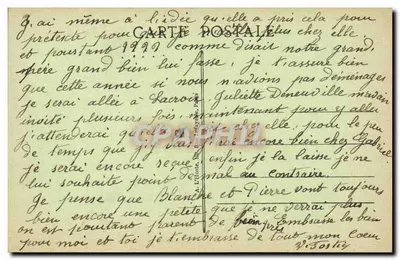 j'ai même à l'idée qu'elle a pris cela pour
prétexte pour plus chez elle
CARTE POSTALE
et pourtant 1920 comme disait notre grand
mère grand bien lui fasse, je t'assure bien
que cette année si nous n'avions pas déménagés
je serai allée à Lacroix Juliette Deneuville m'ayant
invité plusieurs fois, maintenant pour y aller
j'attenderai qu' elle, pour le peu
de temps que j'y encore bien chez Gabriel
je serai encore reçue enfin je la laisse je ne
lui souhaite point de mal au contraire.
Je pense que Blanche et Pierre sont toujours
bien encore une que je ne serai plus
on est pourtant parent de bien près Embrasse les bien
pour moi et toi je t'embrasse de tout mon coeur
CPARHII.FR